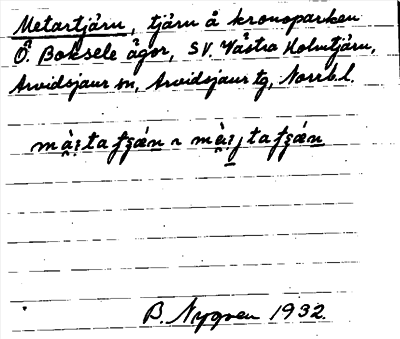 Metartjärn, tjärn å kronoparken
Ö. Boksele ägor, SV. Västra Holmtjärn,
Arvidsjaur sn, Arvidsjaur tg, Norrb. l.
B. Nygren 1932.